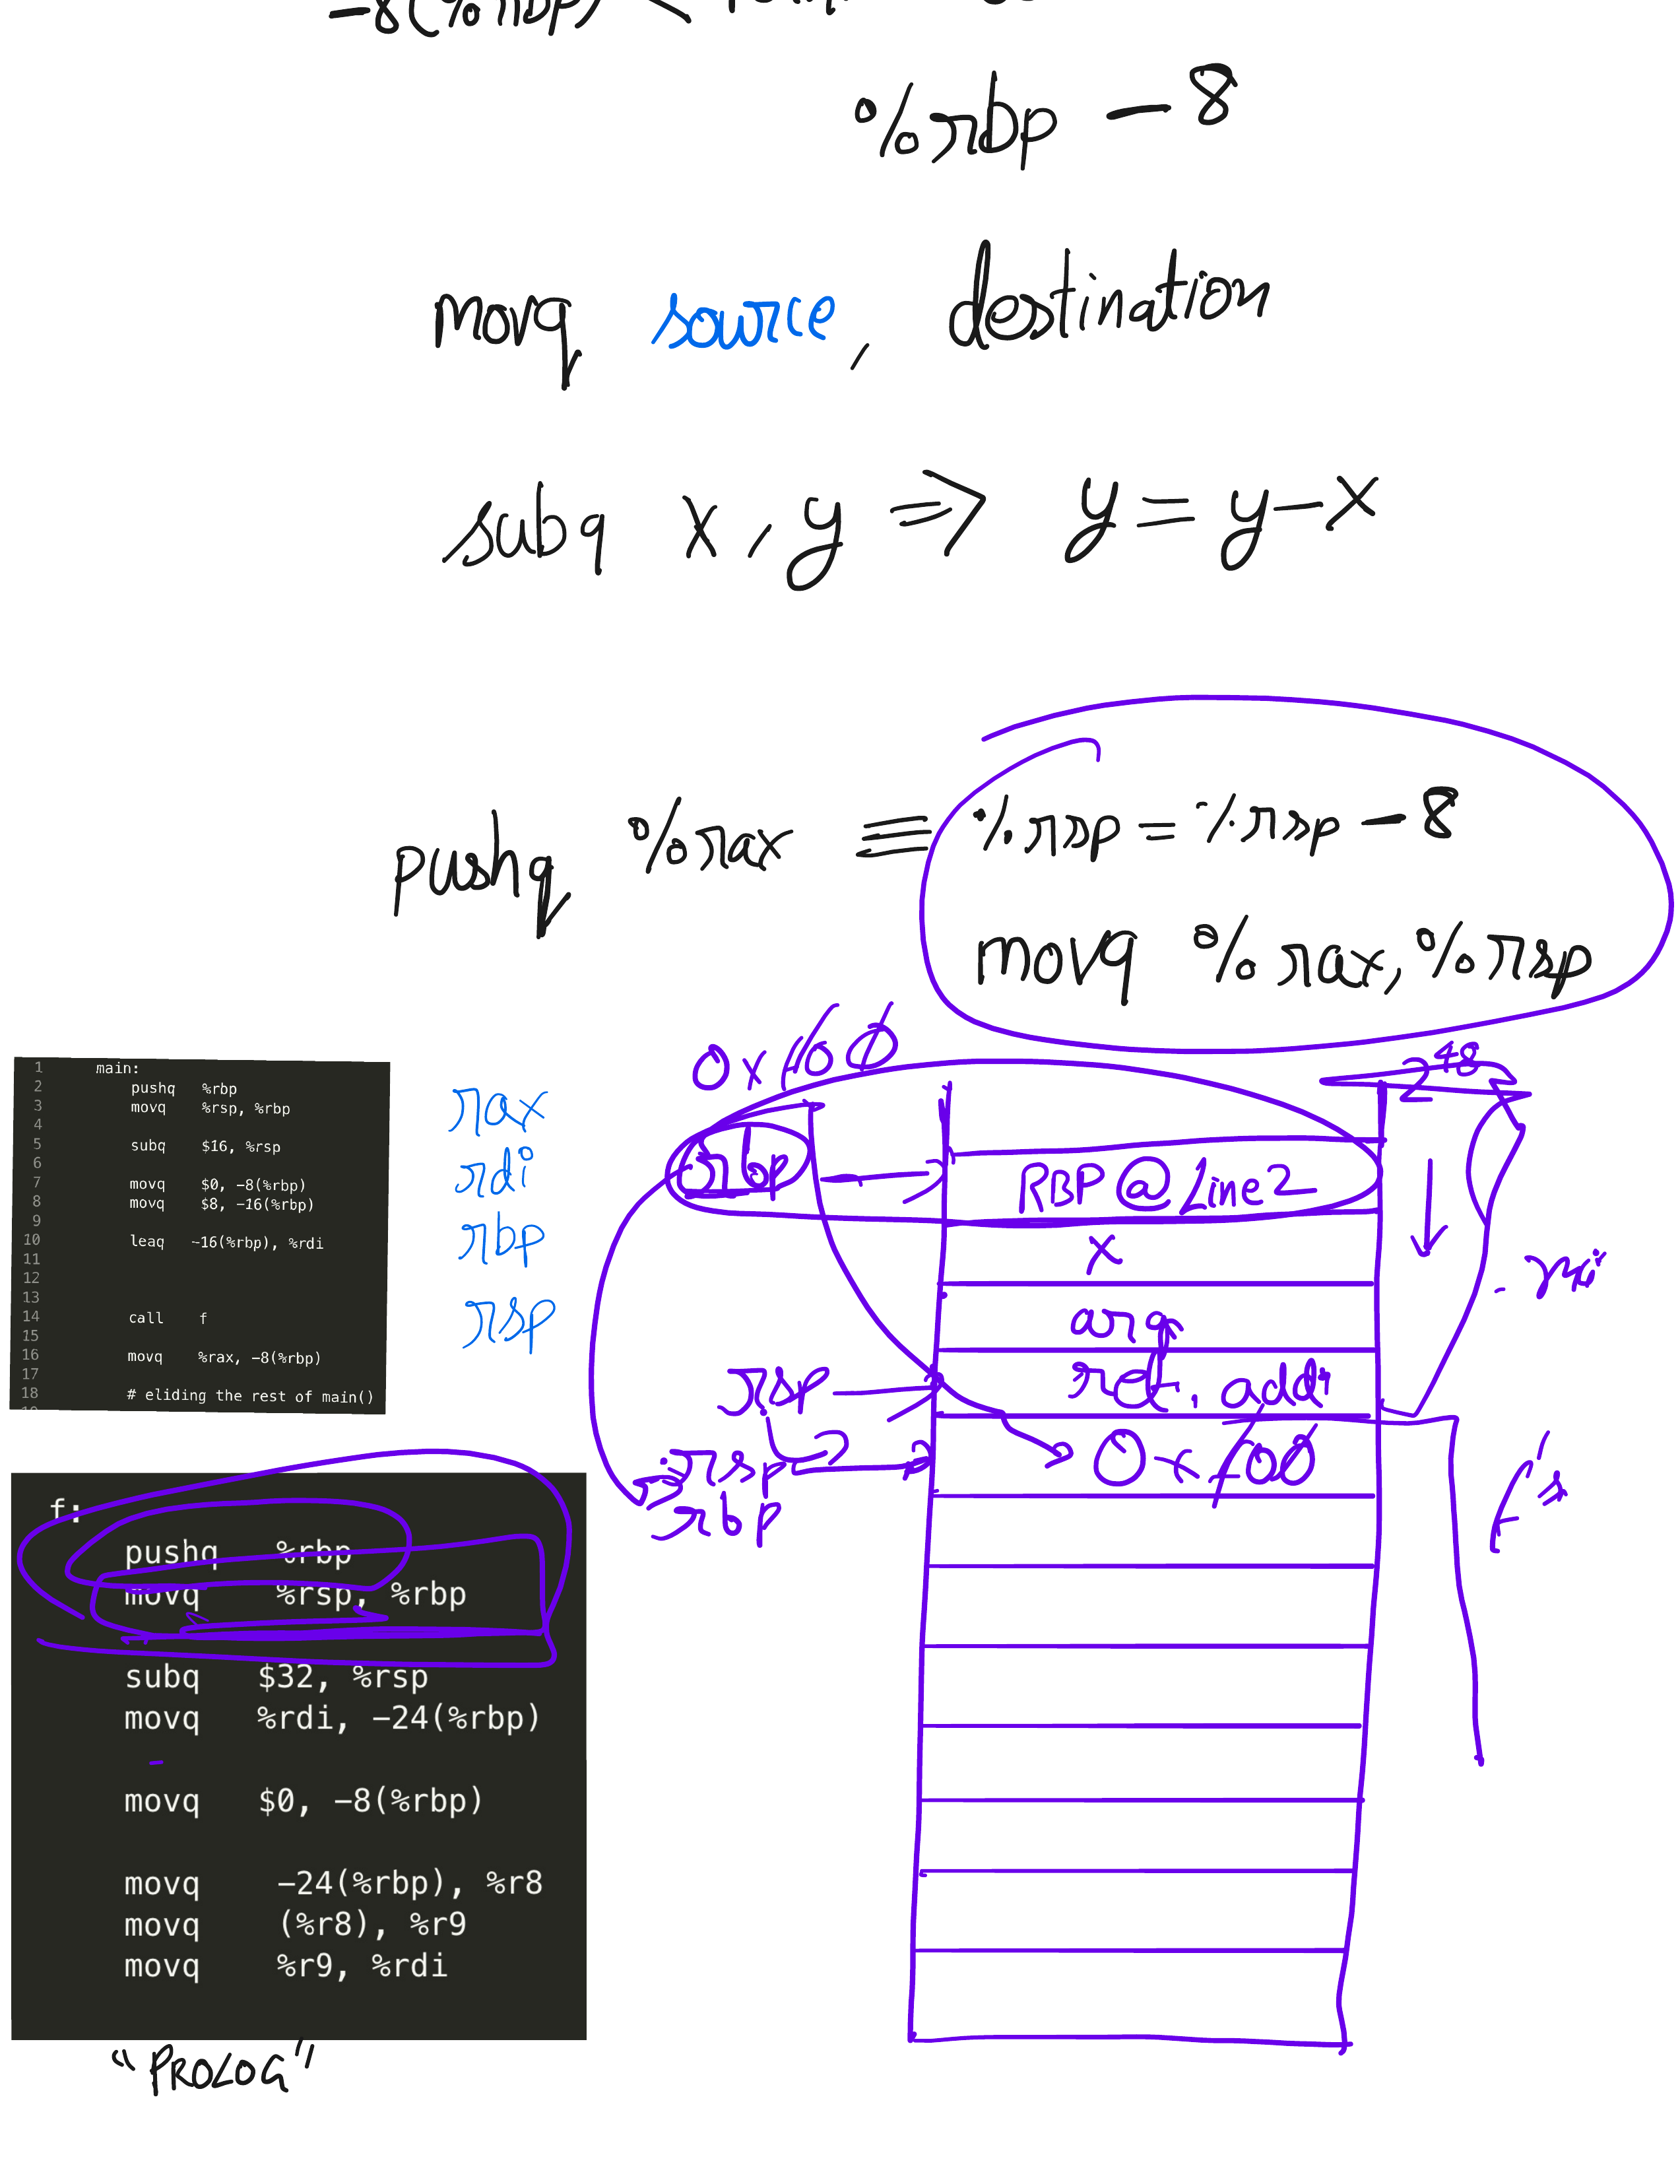 -8(%rbp)
%rbp - 8
movq source, destination
subq x, y ⇒ y = y-x
pushq %rax ≡ %rsp = %rsp - 8
movq %rax, %rsp
1 main:
2 pushq %rbp
3 movq %rsp, %rbp
4
5 subq $16, %rsp
6
7 movq $0, -8(%rbp)
8 movq $8, -16(%rbp)
9
10 leaq -16(%rbp), %rdi
11
12
13
14 call f
15
16 movq %rax, -8(%rbp)
17
18 # eliding the rest of main()
rax
rdi
rbp
rsp
2^48
rbp
RBP @ Line 2
x
arg
rsp
ret. addr
rsp
rbp
f's
f:
pushq %rbp
movq %rsp, %rbp
subq $32, %rsp
movq %rdi, -24(%rbp)
movq $0, -8(%rbp)
movq -24(%rbp), %r8
movq (%r8), %r9
movq %r9, %rdi
"PROLOG"